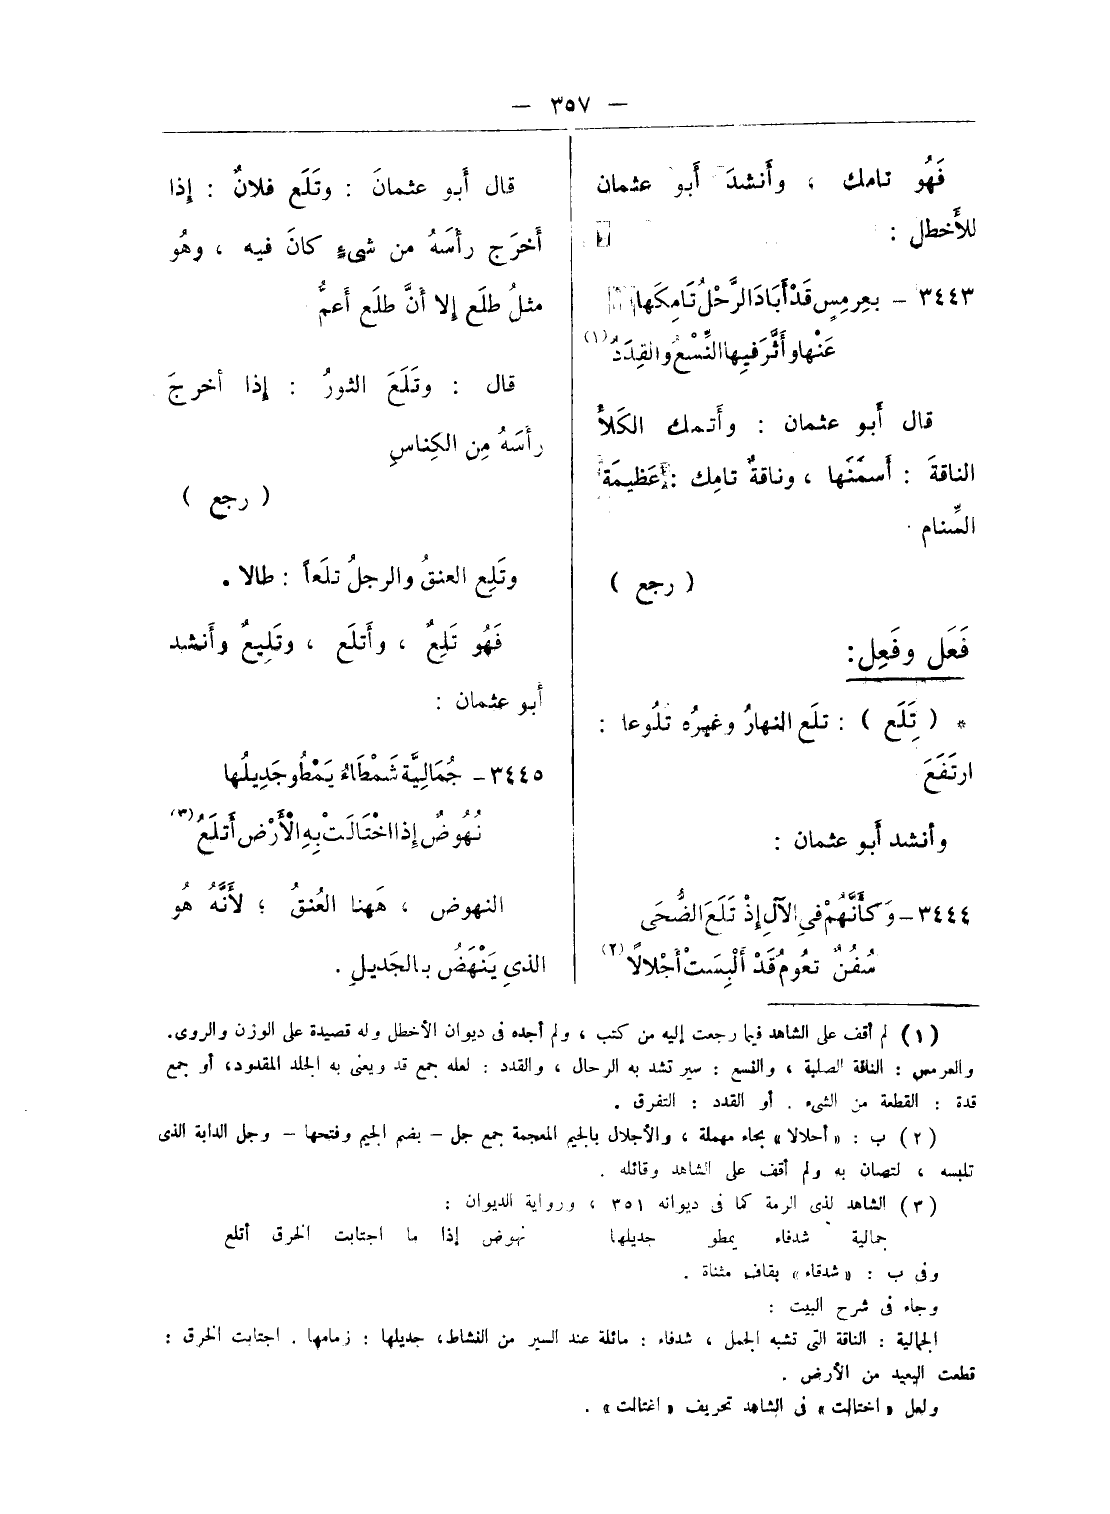 — ٣٥٧ —
فَهُو تامك ، وأَنشدَ أَبو عثمان
للأَخطل :
٣٤٤٣ – بعِرمِسٍ قَدْ أَبَادَ الرَّحْلُ تَامِكَها
عَنْها وأَثَّرَ فيها النِّسْعُ والقِدَدُ (١)
قال أَبو عثمان : وأَتمك الكَلأُ
الناقةَ : أَسمَنَها ، وناقةٌ تامِك : عَظيمَة
السِّنام .
( رجع )
فَعَل وفَعِل :
* ( تَلَع ) : تلَع النهارُ وغيرُه تلُوعا :
ارتَفَعَ
وأنشد أَبو عثمان :
٣٤٤٤ – وَكأَنَّهُمْ في الآلِ إِذْ تَلَعَ الضُّحَى
سُفُنٌ تعُومُ قَدْ أُلْبِسَتْ أَجْلالًا (٢)
قال أَبو عثمانَ : وتَلَع فلانٌ : إِذا
أَخرَج رأسَهُ من شىءٍ كانَ فيه ، وهُو
مثلُ طلَع إلا أنَّ طلَع أَعمُّ
قال : وتَلَعَ الثورُ : إذا أخرجَ
رأسَهُ مِن الكِناسِ
( رجع )
وتَلِع العنقُ والرجلُ تلَعاً : طالا .
فَهُو تَلِعٌ ، وأَتلَع ، وتَلِيعٌ وأَنشد
أبو عثمان :
٣٤٤٥ – جُمَالِيَّة شَمْطَاءُ يَمْطُو جَدِيلُها
نُهُوضٌ إِذا اخْتَالَتْ بِهِ الْأَرْض أَتلَعُ (٣)
النهوض ، هَهنا العُنقُ ؛ لأَنَّهُ هُو
الذي يَنْهَضُ بالجَديلِ .
(١) لم أقف على الشاهد فيما رجعت إليه من كتب ، ولم أجده فى ديوان الأخطل وله قصيدة على الوزن والروى.
والعرمس : الناقة الصلبة ، والنسع : سير تشد به الرحال ، والقدد : لعله جمع قد ويعنى به الجلد المقدود، أو جمع
قدة : القطعة من الشىء . أو القدد : التفرق .
(٢) ب : « أحلالا » بحاء مهملة ، والأجلال بالجيم المعجمة جمع جل – بضم الجيم وفتحها – وجل الدابة الذى
تلبسه ، لتصان به ولم أقف على الشاهد وقائله .
(٣) الشاهد لذى الرمة كما فى ديوانه ٣٥١ ، ورواية الديوان :
جمالية شدفاء يمطو جديلها نهوض إذا ما اجتابت الخرق أتلع
وفى ب : « شدقاء » بقاف مثناة .
وجاء فى شرح البيت :
الجمالية : الناقة التى تشبه الجمل ، شدفاء : مائلة عند السير من النشاط، جديلها : زمامها . اجتابت الخرق :
قطعت البعيد من الأرض .
ولعل « اختالت » فى الشاهد تحريف « اغتالت » .